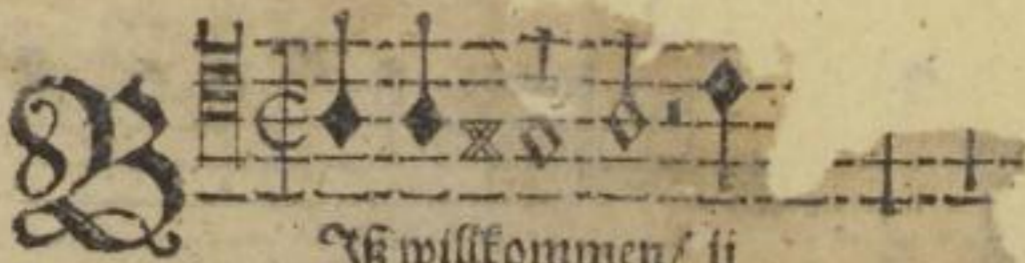 BIß willkommen/ ij